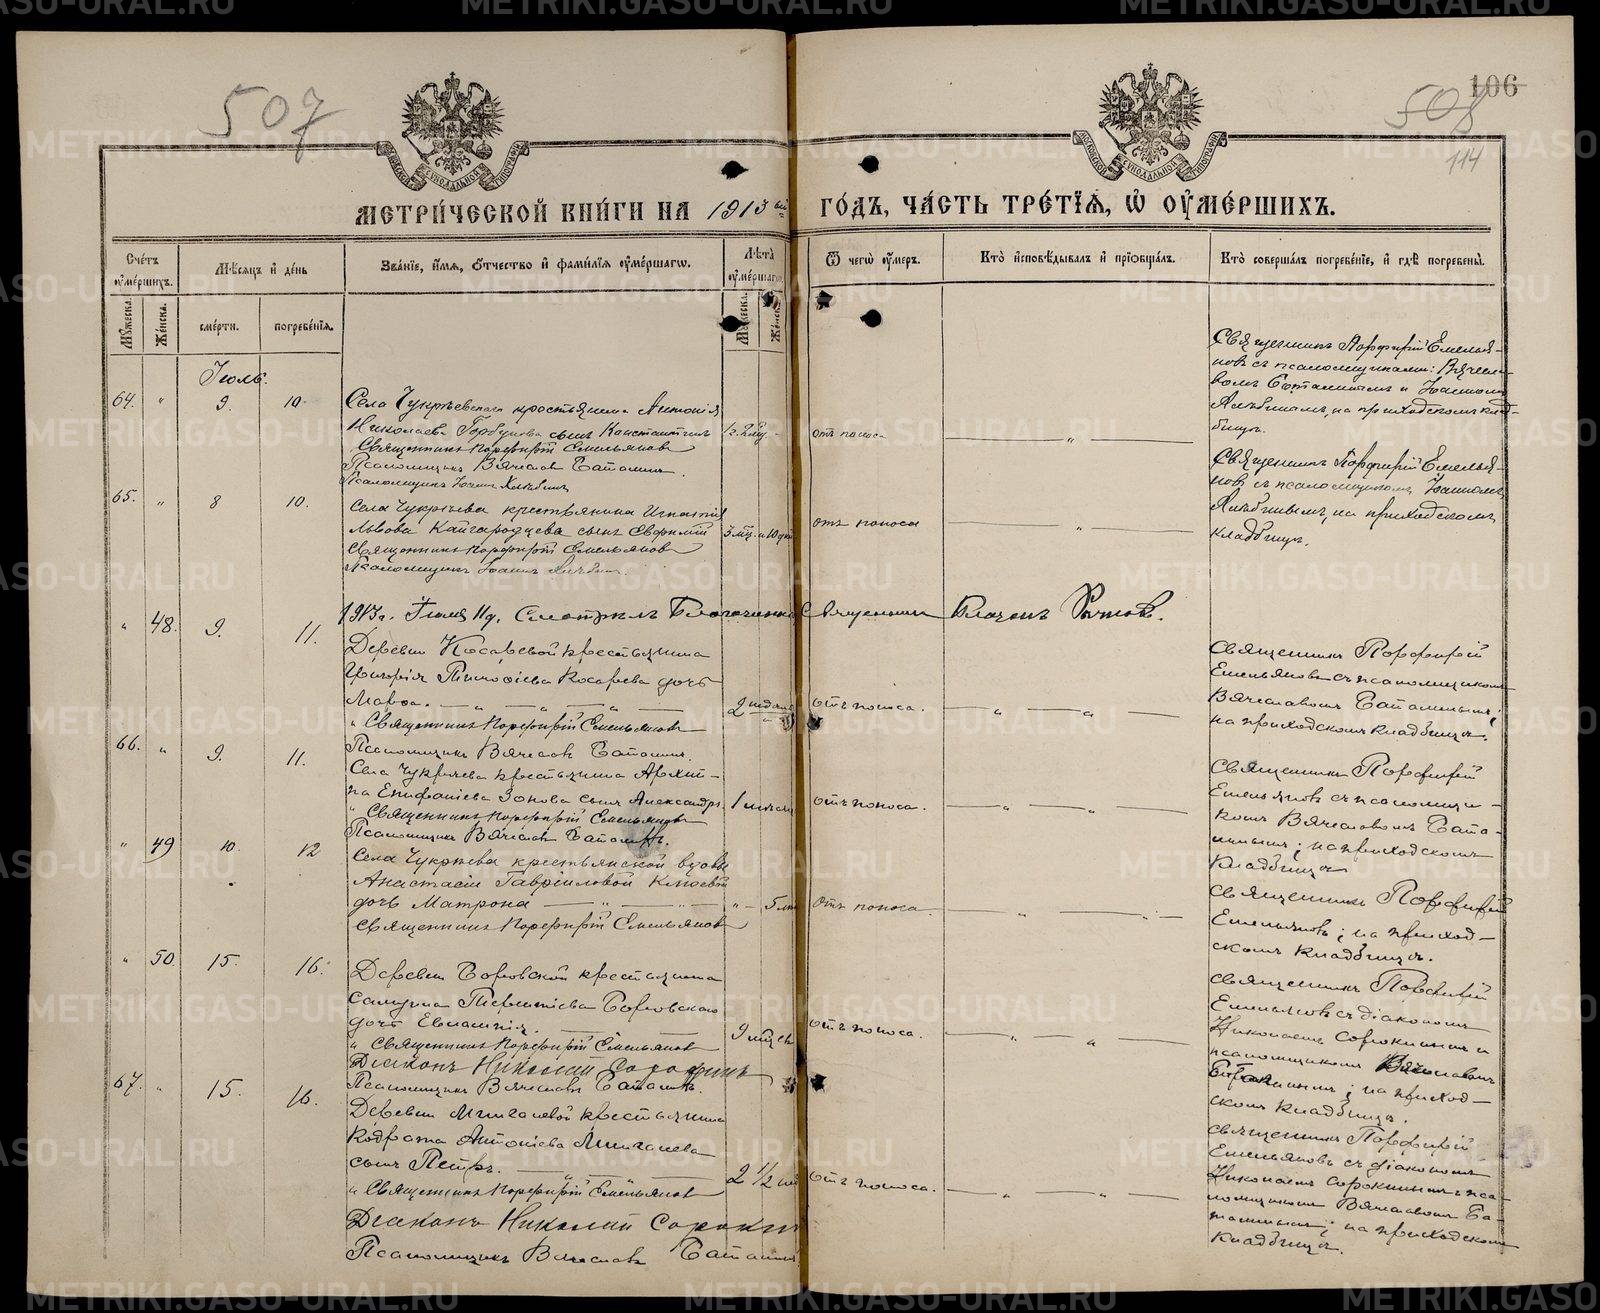 507
508
106
114
МЕТРИ́ЧЕСКОЙ КНИ́ГИ НА 1913 ый ГО́ДЪ, ЧА́СТЬ ТРЕ́ТІѦ, Ѽ ОУ҆МЕ́РШИХЪ.
Сче́тъ оу҆ме́ршихъ.
Мѣ́сѧцъ и҆ де́нь
Зва́нїе, и҆́мѧ, ѻ҆́тчество и҆ фами́лїѧ оу҆ме́ршагѡ.
Лѣ́та оу҆ме́ршагѡ.
Ѿ чегѡ̀ оу҆́меръ.
Кто̀ и҆сповѣ́дывалъ и҆ прїѡбща́лъ.
Кто̀ соверша́лъ погребе́нїе, и҆ гдѣ̀ погребены̀.
Мꙋ́жеска.
Же́нска.
сме́рти.
погребе́нїѧ.
Мꙋ́жеска.
Же́нска.
Іюль.
64. " 9. 10.
Села Чукреевскаго крестьянина Антонія
Николаева Горбунова сынъ Константинъ
Священникъ Порфирій Емельяновъ
Псаломщикъ Вячеславъ Баталинъ
Псаломщикъ Іоаннъ
отъ поноса
Священникъ Порфирій Емелья-
новъ съ псаломщиками: Вячесла-
вомъ Баталинымъ и Іоанномъ
на приходскомъ клад-
бищѣ.
65. " 8 10.
Села Чукреева крестьянина Игнатія
Львова Кайгородцева сынъ Евфимій
3 мѣс. и 10 дн
Священникъ Порфирій Емельяновъ
Псаломщикъ Іоаннъ
отъ поноса
Священникъ Порфирій Емелья-
новъ съ псаломщикомъ Іоанномъ
на приходскомъ
кладбищѣ.
1913 г. Іюля 11 д. Смотрѣлъ Благочинный Священникъ
" 48. 9. 11.
Деревни Косаревой крестьянина
Григорія Тимофіева Косарева дочь
Марѳа.
2 недѣли
" Священникъ Порфирій Емельяновъ
Псаломщикъ Вячеславъ Баталинъ.
отъ поноса.
Священникъ Порфирій
Емельяновъ съ псаломщикомъ
Вячеславомъ Баталинымъ;
на приходскомъ кладбищѣ.
66. " 9. 11.
Села Чукреева крестьянина Архип-
па Епифаніева Зонова сынъ Александръ
1 мѣсяц
" Священникъ Порфирій Емельяновъ
Псаломщикъ Вячеславъ Баталинъ.
отъ поноса.
Священникъ Порфирій
Емельяновъ съ псаломщи-
комъ Вячеславомъ Бата-
линымъ; на приходскомъ
кладбищѣ
" 49 10. 12
Села Чукреева крестьянской вдовы
Анастасіи Гавріиловой
дочь Матрона
Священникъ Порфирій Емельяновъ
отъ поноса.
Священникъ Порфирій
Емельяновъ; на приход-
скомъ кладбищѣ.
" 50. 15. 16.
Деревни Боровской крестьянина
Терентіева Боровскаго
дочь Евлампія.
9 мѣсяц
" Священникъ Порфирій Емельяновъ
Діаконъ Николай Сорокинъ
Псаломщикъ Вячеславъ Баталинъ.
отъ поноса.
Священникъ Порфирій
Емельяновъ съ діакономъ
Николаемъ Сорокинымъ и
псаломщикомъ Вячеславомъ
Баталинымъ; на приход-
скомъ кладбищѣ.
67. " 15. 16.
Деревни Мингалевой крестьянина
Кодрата Антоніева Мингалева
сынъ Петръ.
2 1/2
" Священникъ Порфирій Емельяновъ
Діаконъ Николай Сорокинъ
Псаломщикъ Вячеславъ Баталинъ
отъ поноса.
Священникъ Порфирій
Емельяновъ съ діакономъ
Николаемъ Сорокинымъ и пса-
ломщикомъ Вячеславомъ Ба-
талинымъ; на приходскомъ
кладбищѣ.
METRIKI.GASO-URAL.RU